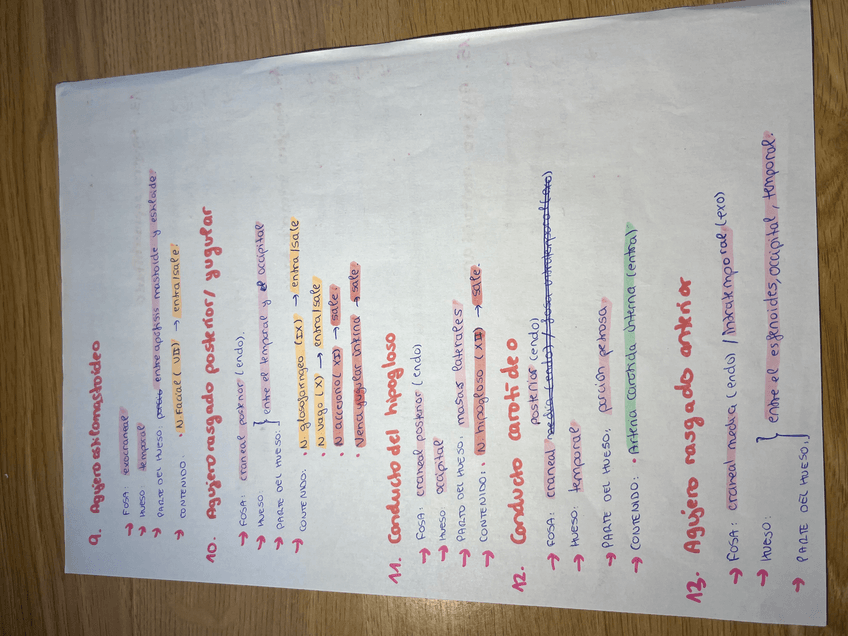 9. Agujero estilomastoideo
→ FOSA: exocraneal
→ HUESO: temporal
→ PARTE DEL HUESO: entre apófisis mastoide y estiloide.
→ CONTENIDO: • N. Facial (VII) → entra/sale.
10. Agujero rasgado posterior/ yugular
→ FOSA: craneal posterior (endo).
→ HUESO: } entre el temporal y el occipital
→ PARTE DEL HUESO:
→ CONTENIDO: • N. glosofaríngeo (IX) → entra/sale
• N. Vago (X) → entra/sale
• N. accesorio (XI) → sale.
• Vena yugular interna → sale.
11. Conducto del hipogloso
→ FOSA: craneal posterior (endo)
→ HUESO: occipital
→ PARTE DEL HUESO: masas laterales.
→ CONTENIDO: • N. hipogloso (XII) → sale.
12. Conducto carotídeo
posterior (endo)
→ FOSA: craneal media (endo) / fosa intratemporal (exo)
→ HUESO: temporal
→ PARTE DEL HUESO: porción petrosa.
→ CONTENIDO: • Arteria carótida interna (entra)
13. Agujero rasgado anterior
→ FOSA: craneal media (endo) / intratemporal (exo)
→ HUESO: } entre el esfenoides, occipital, temporal.
→ PARTE DEL HUESO: